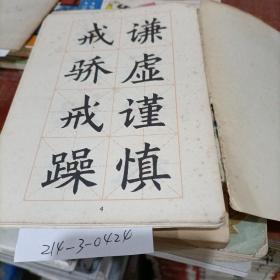 谦虚谨慎
戒骄戒躁
4
214-3-0424